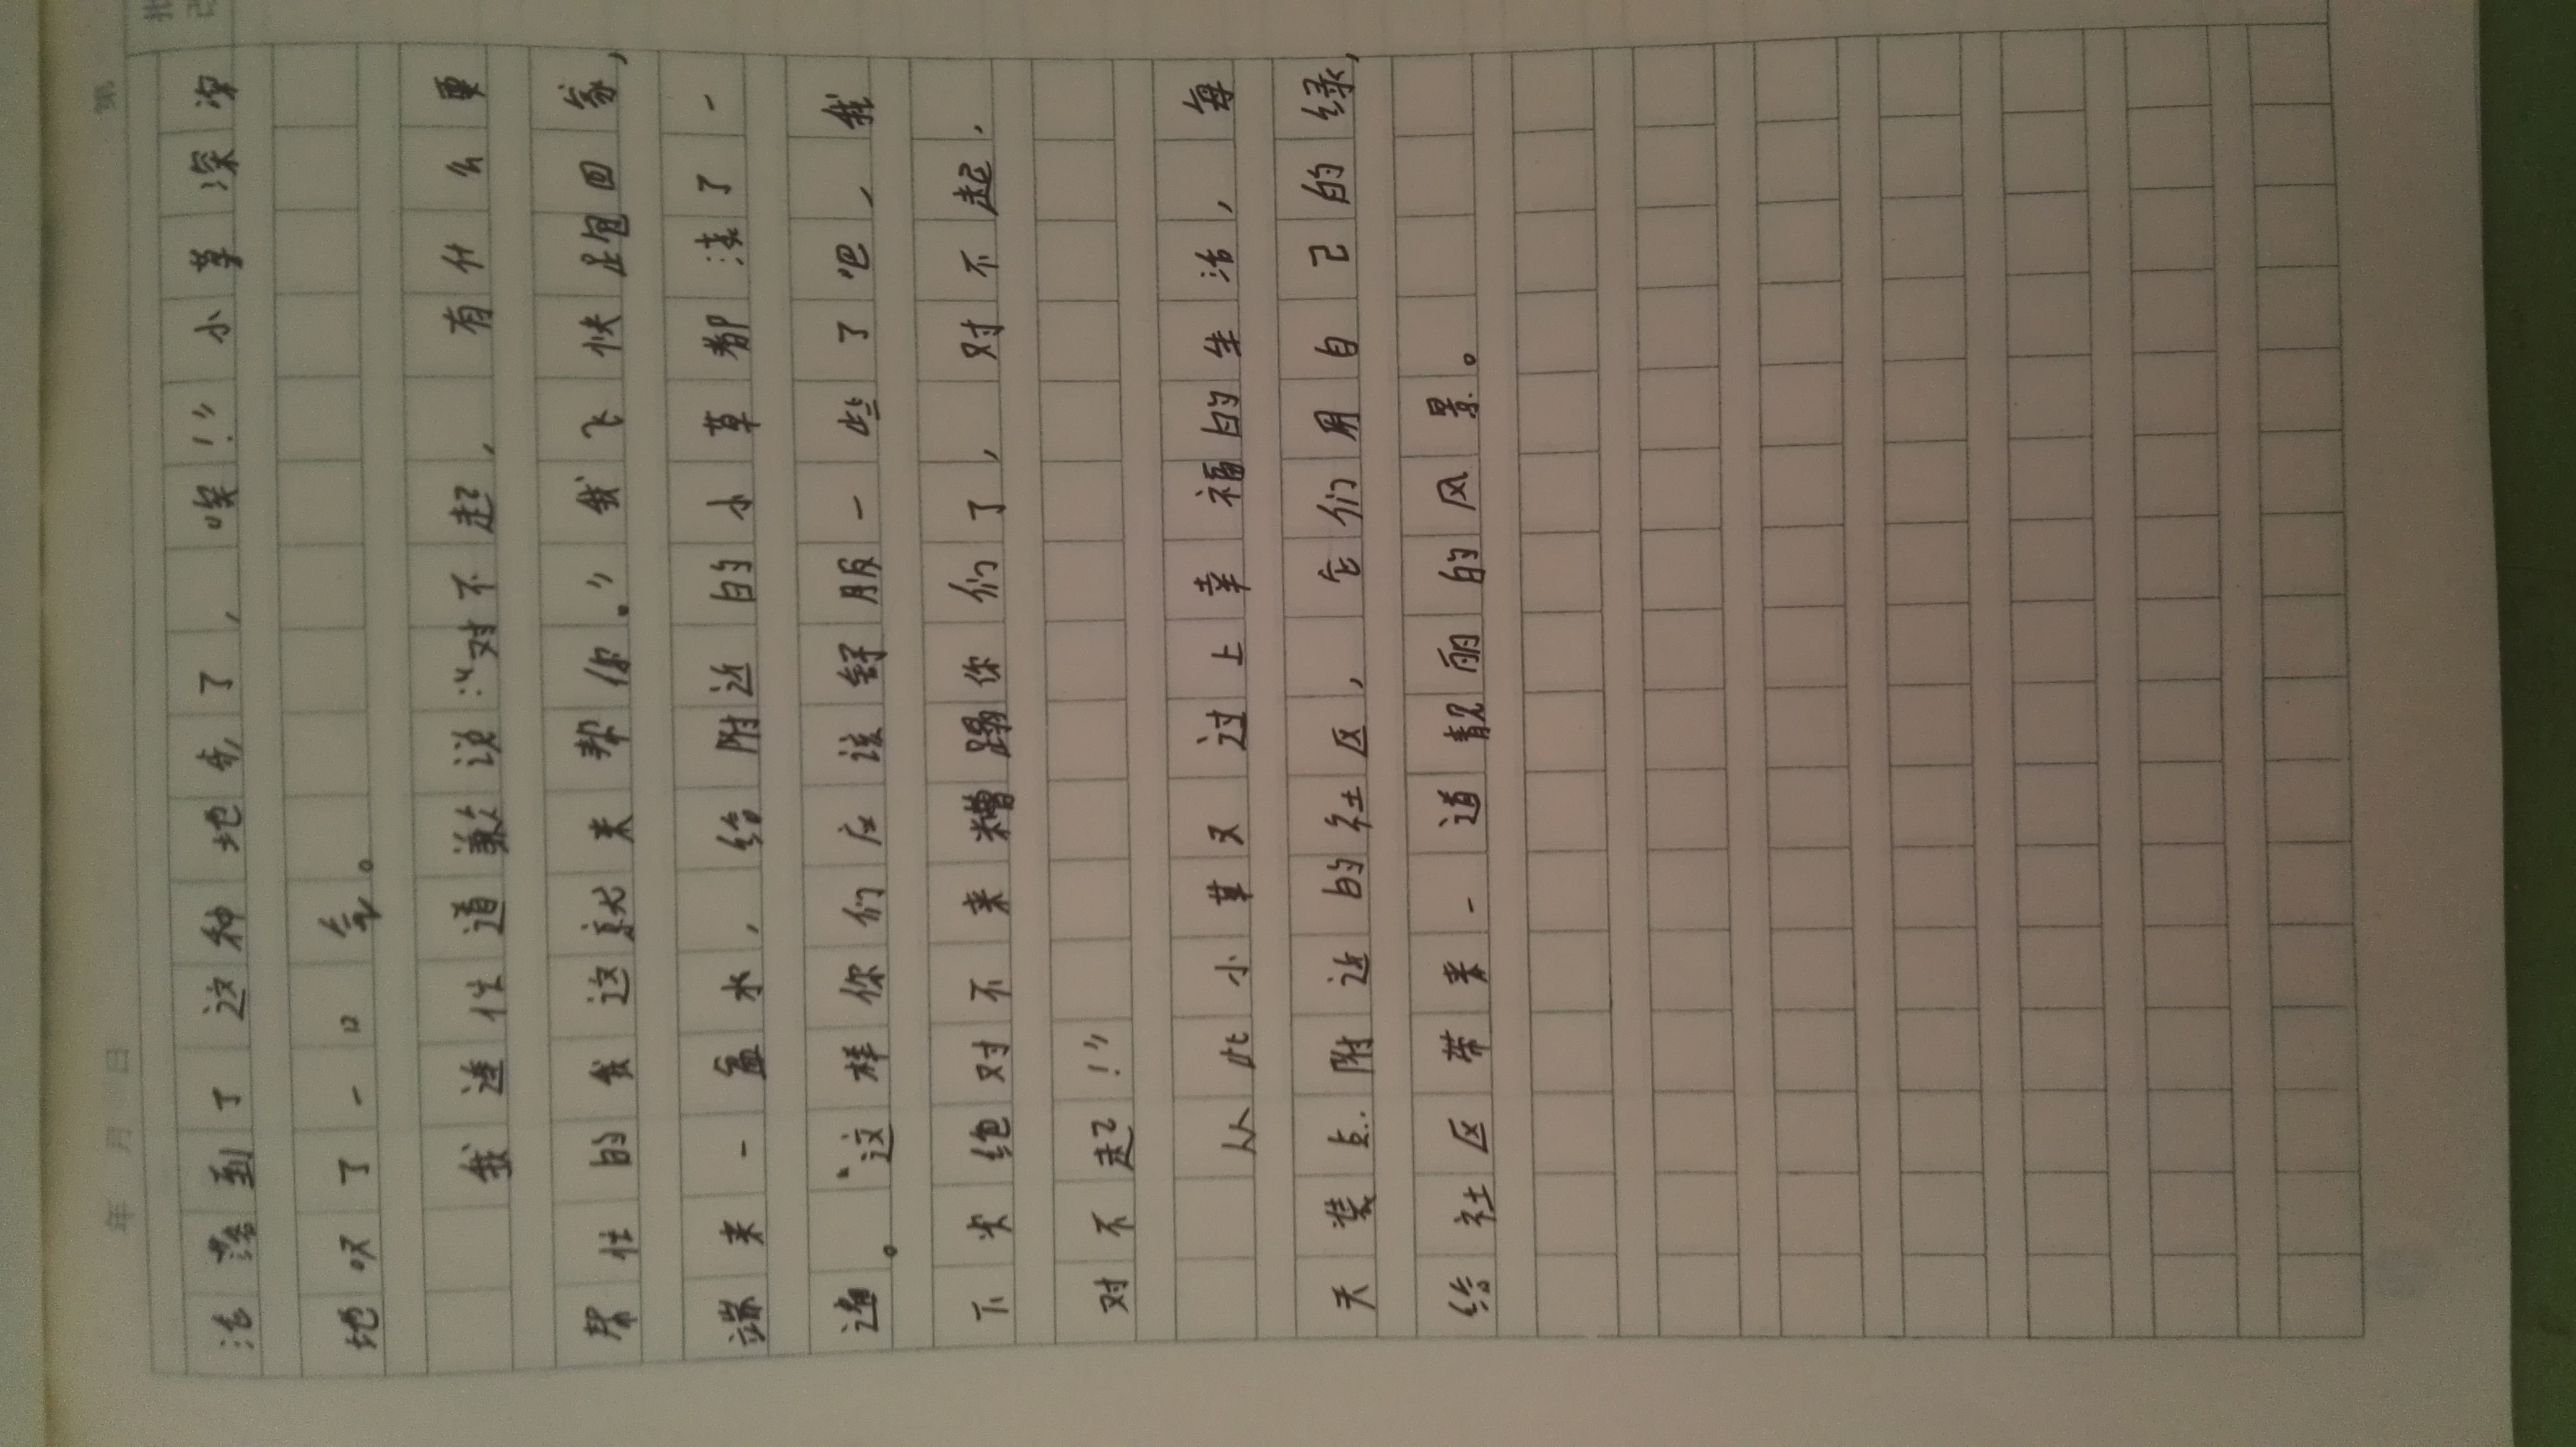 年 月 日
活落到了这种地步了，唉！”小草深深
地叹了一口气。
我连忙道歉说：“对不起，有什么要
帮忙的我这就来帮你。”我飞快跑回家，
端来一盆水，给附近的小草都浇了一
遍。“这样你们应该舒服一些了吧，我
下次绝对不来糟蹋你们了，对不起，
对不起！”
从此小草又过上幸福的生活，每
天装点附近的社区，它们用自己的绿，
给社区带来一道靓丽的风景。